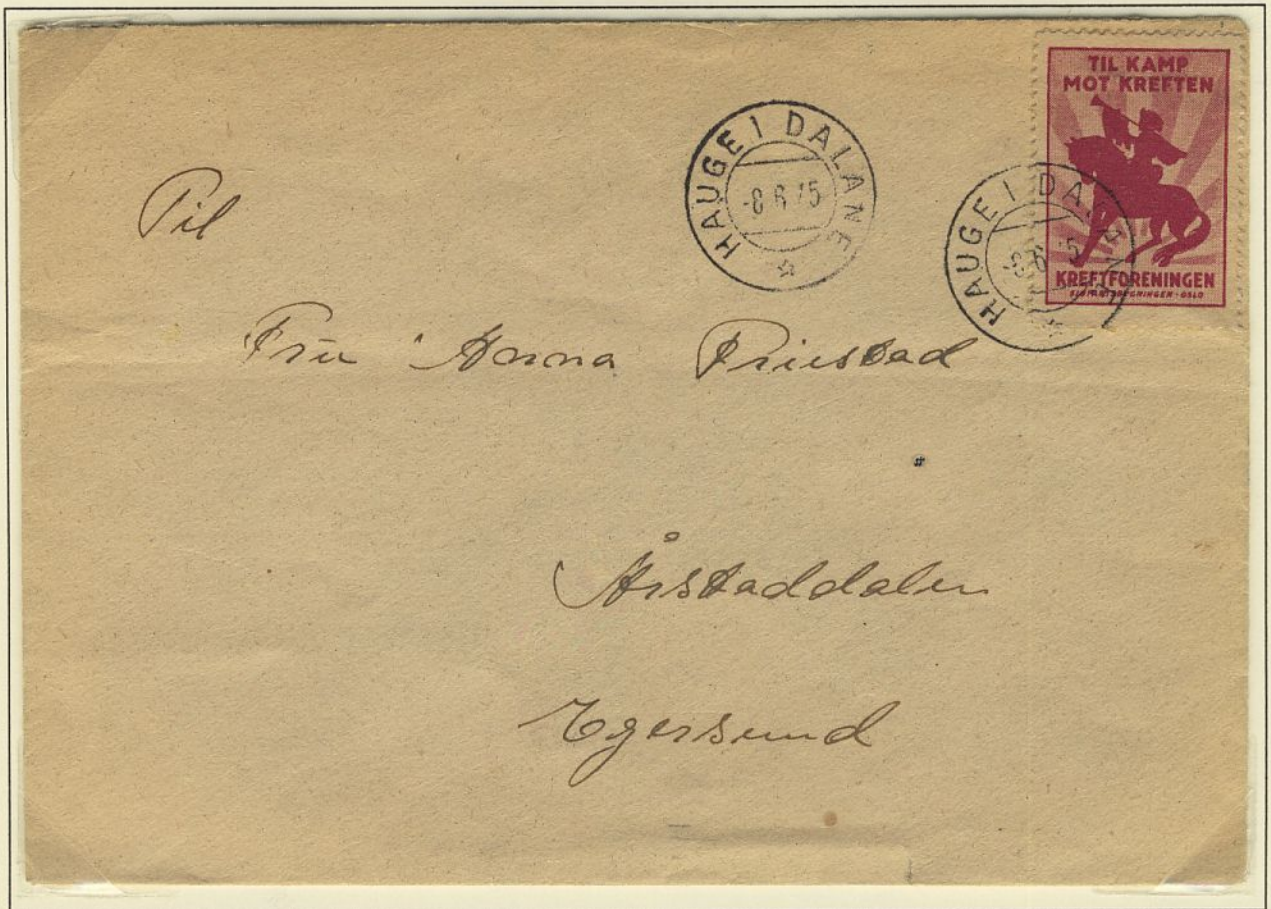 TIL KAMP
MOT KREFTEN
KREFTFORENINGEN
HAUGE I DALANE
-8 6
HAUGE I DALANE
Til
Fru Anna
Årstaddalen
Egersund